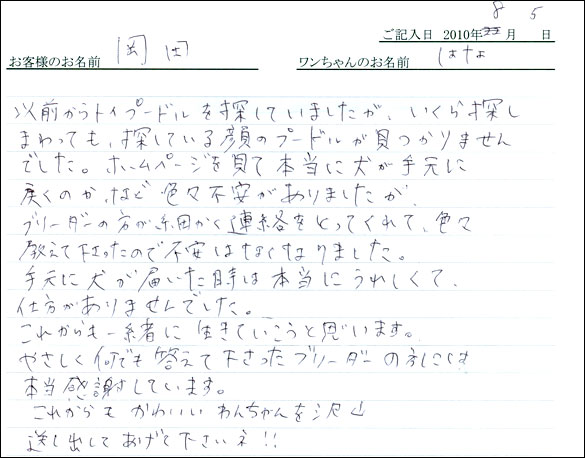 8 5
ご記入日 2010年 月 日
お客様のお名前 岡田 ワンちゃんのお名前 はな
以前からトイプードルを探していましたが、いくら探し
まわっても、探している顔のプードルが見つかりません
でした。ホームページを見て本当に犬が手元に
戻くのか、など色々不安がありましたが
ブリーダーの方が細かく連絡をとってくれて、色々
教えて下さったので不安はなくなりました。
手元に犬が届いた時は本当にうれしくて、
仕方がありませんでした。
これからも一緒に生きていこうと思います。
やさしく何でも答えて下さったブリーダーの方には
本当感謝しています。
これからもかわいいわんちゃんを沢山
送し出してあげて下さいネ!!